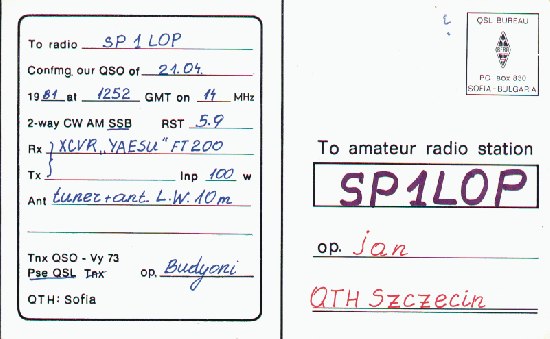 To radio SP 1 LOP
Confmg our QSO of 21.04.
1981 at 1252 GMT on 14 MHz
2-way CW AM SSB RST 5.9
Rx } XCVR „YAESU" FT 200
Tx Inp 100 w
Ant tuner + ant. L.W. 10 m
Tnx QSO - Vy 73
Pse QSL Tnx op. Budyoni
QTH: Sofia
QSL BUREAU
P.O. Box 830
SOFIA - BULGARIA
To amateur radio station
SP1LOP
op. jan
QTH Szczecin